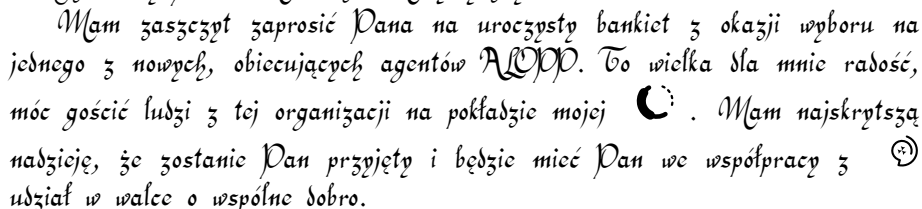 Mam zaszczyt zaprosić Pana na uroczysty bankiet z okazji wyboru na
jednego z nowych, obiecujących agentów ALOPP. To wielka dla mnie radość,
móc gościć ludzi z tej organizacji na pokładzie mojej . Mam najskrytszą
nadzieję, że zostanie Pan przyjęty i będzie mieć Pan we współpracy z
udział w walce o wspólne dobro.